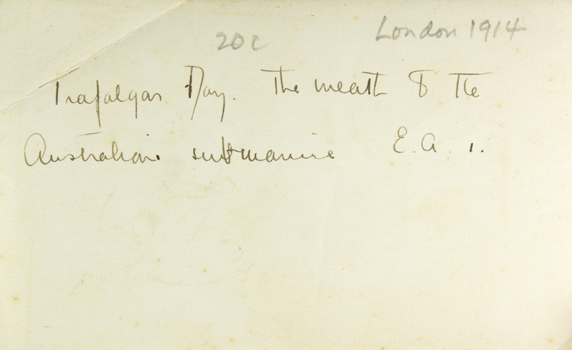 20c London 1914
Trafalgar Day. The wreath to the
Australian submarine E.A. 1.